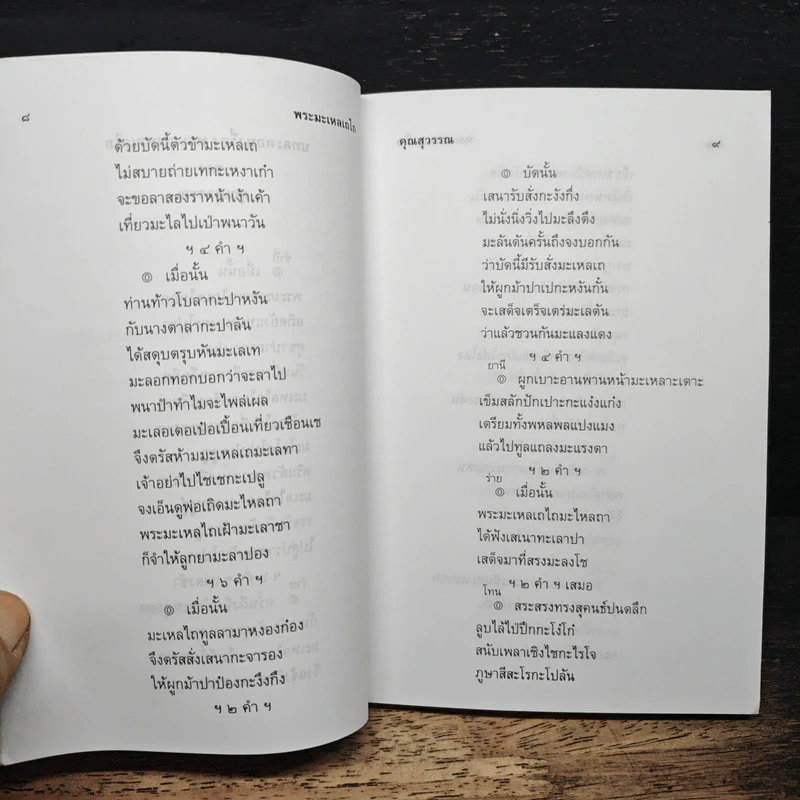 ๘
พระมะเหลเถไถ
ด้วยบัดนี้ตัวข้ามะเหลเถ
ไม่สบายถ่ายเทกะเหงาเก๋า
จะขอลาสองราหน้าเง้าเค้า
เที่ยวมะไลไปเป่าพนาวัน
ฯ ๔ คำ ฯ
๏ เมื่อนั้น
ท่านท้าวโปลากะปาหงัน
กับนางตาลากะปาลัน
ได้สดุบตรุบหันมะเลเท
มะลอกทอกบอกว่าจะลาไป
พนาป๋าทำไมจะไพล่เผล
มะเลอเตอเป๋อเปื้อนเที่ยวเชือนเช
จึงตรัสห้ามมะเหลเถมะเลทา
เจ้าอย่าไปไชเชกะเปลู
จงเอ็นดูพ่อเถิดมะไหลถา
พระมะเหลไถเฝ้ามะเลาชา
ก็จำให้ลูกยามะลาปอง
ฯ ๖ คำ ฯ
๏ เมื่อนั้น
มะเหลไถทูลลามาหงองก๋อง
จึงตรัสสั่งเสนากะจารอง
ให้ผูกม้าปาป๋องกะงึงกึง
ฯ ๒ คำ ฯ
คุณสุวรรณ
๙
๏ บัดนั้น
เสนารับสั่งกะงังกึ่ง
ไม่นั่งนิ่งวิ่งไปมะลึงตึง
มะลันตันครั้นถึงจงบอกกัน
ว่าบัดนี้มีรับสั่งมะเหลเถ
ให้ผูกม้าปาเปกะหงันกั๋น
จะเสด็จเตร็จเตร่มะเลตัน
ว่าแล้วชวนกันมะแลงแตง
ฯ ๔ คำ ฯ
ยานี
๏ ผูกเบาะอานพานหน้ามะเหลาะเตาะ
เข็มสลักปักเปาะกะแง๋งแก๋ง
เตรียมทั้งพหลพลแปงแมง
แล้วไปทูลแถลงมะแรงตา
ฯ ๒ คำ ฯ
ร่าย
๏ เมื่อนั้น
พระมะเหลเถไถมะไหลถา
ได้ฟังเสเนาทะเลาปา
เสด็จมาที่สรงมะลงโช
ฯ ๒ คำ ฯ เสมอ
โทน
๏ สระสรงทรงสุคนธ์ปนตลึก
ลูบไล้ไป่ปึกกะโง๋โก๋
สนับเพลาเชิงไชกะไรโจ
ภูษาสีสะโรกะโปลัน